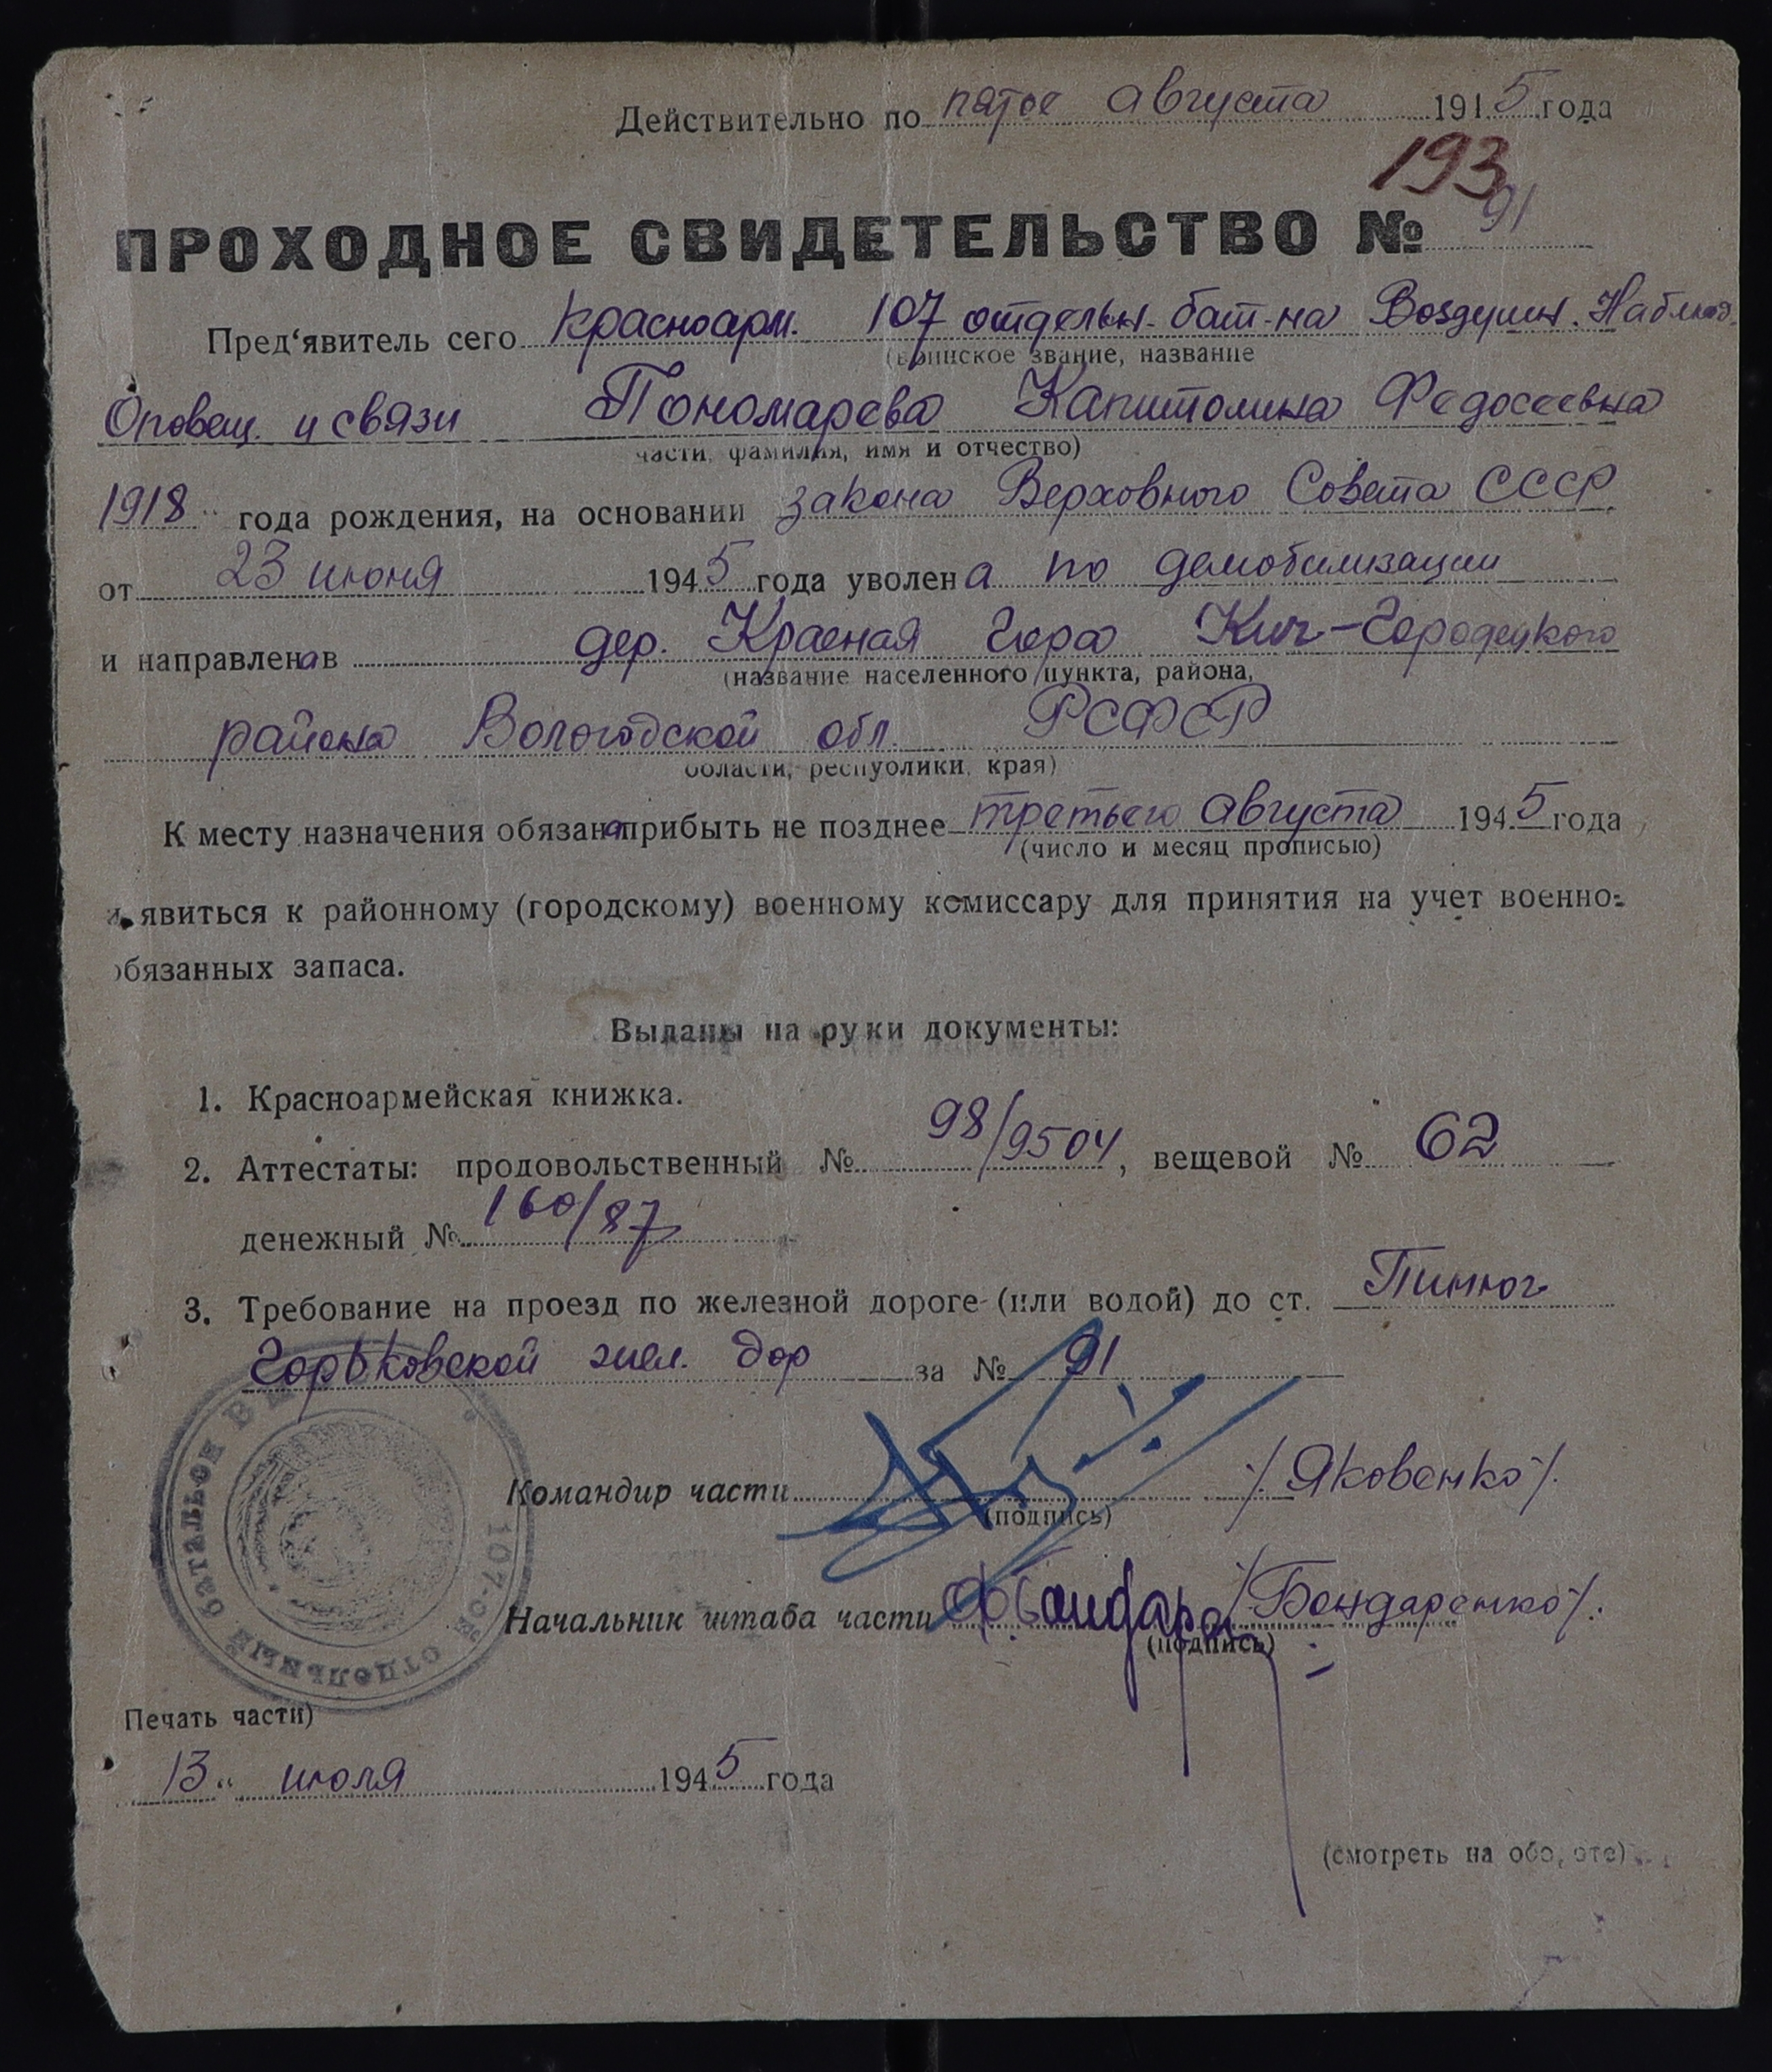 Действительно по пятое августа 1945 года
193
ПРОХОДНОЕ СВИДЕТЕЛЬСТВО № 91
Пред‘явитель сего красноарм. 107 отдельн. бат-на Воздушн. Наблюд.
(воинское звание, название
Оповещ. и связи Пономарева Капитолина Федосеевна
части, фамилия, имя и отчество)
1918 " года рождения, на основании закона Верховного Совета СССР
от 23 июня 1945 года уволена по демобилизации
и направлена в дер. Красная Гора Кич-Городецкого
(название населенного пункта, района,
района Вологодской обл. РСФСР
области, республики, края)
К месту назначения обязана прибыть не позднее третьего августа 1945 года
(число и месяц прописью)
и явиться к районному (городскому) военному комиссару для принятия на учет военно-
обязанных запаса.
Выданы на руки документы:
1. Красноармейская книжка.
2. Аттестаты: продовольственный № 98/9504, вещевой № 62
денежный № 160/87
3. Требование на проезд по железной дороге (или водой) до ст. Пинюг
Горьковской жел. дор за № 91
Командир части /Яковенко/.
(подпись)
Начальник штаба части /Бондаренко/.
(подпись)
107-ой отдельный батальон В
Печать части)
13 " июля 1945 года
(смотреть на обороте)